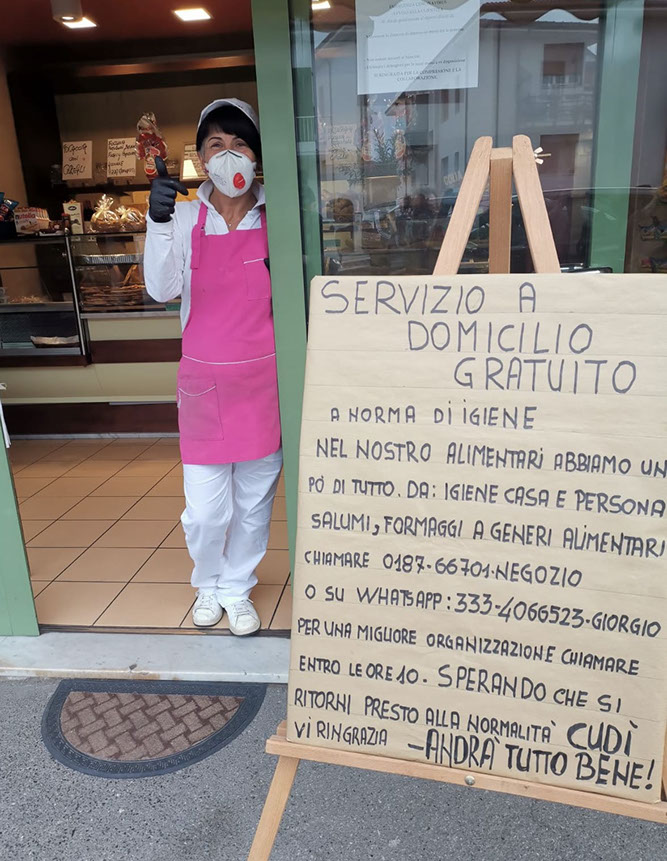 SERVIZIO A
DOMICILIO
GRATUITO
A NORMA DI IGIENE
NEL NOSTRO ALIMENTARI ABBIAMO UN
PÒ DI TUTTO. DA: IGIENE CASA E PERSONA
SALUMI, FORMAGGI A GENERI ALIMENTARI
CHIAMARE 0187-66701-NEGOZIO
O SU WHATSAPP: 333-4066523-GIORGIO
PER UNA MIGLIORE ORGANIZZAZIONE CHIAMARE
ENTRO LE ORE 10. SPERANDO CHE SI
RITORNI PRESTO ALLA NORMALITÀ CUDÌ
VI RINGRAZIA -ANDRÀ TUTTO BENE!